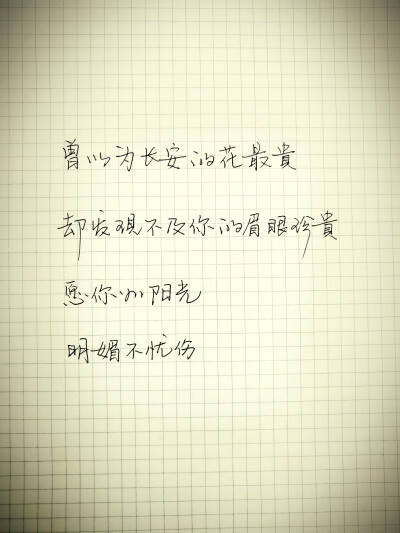 曾以为长安的花最貴
却发現不及你的眉眼珍貴
愿你如阳光
明媚不忧伤